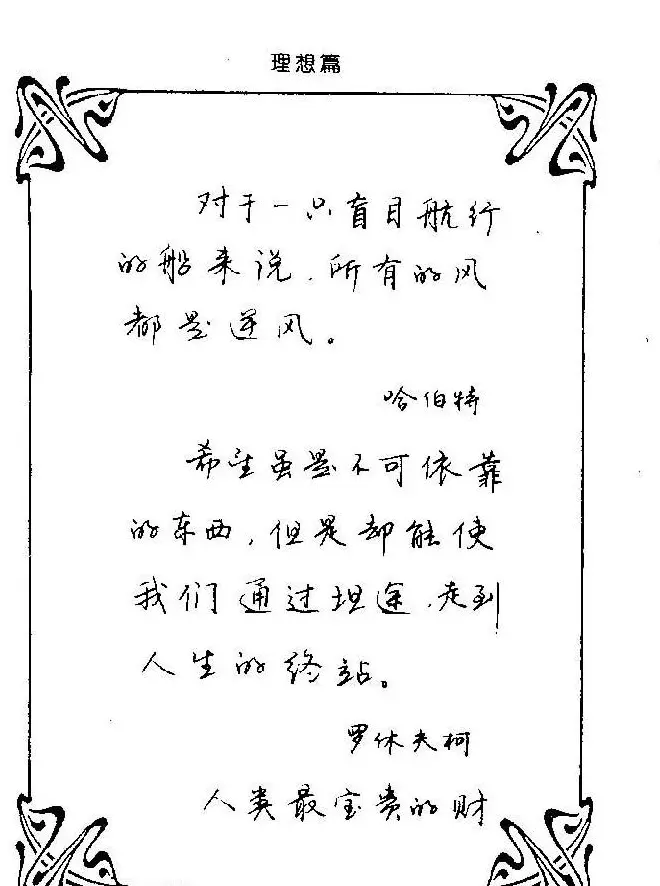 理想篇
对于一只盲目航行
的船来说，所有的风
都是逆风。
哈伯特
希望虽是不可依靠
的东西，但是却能使
我们通过坦途，走到
人生的终站。
罗休夫柯
人类最宝贵的财